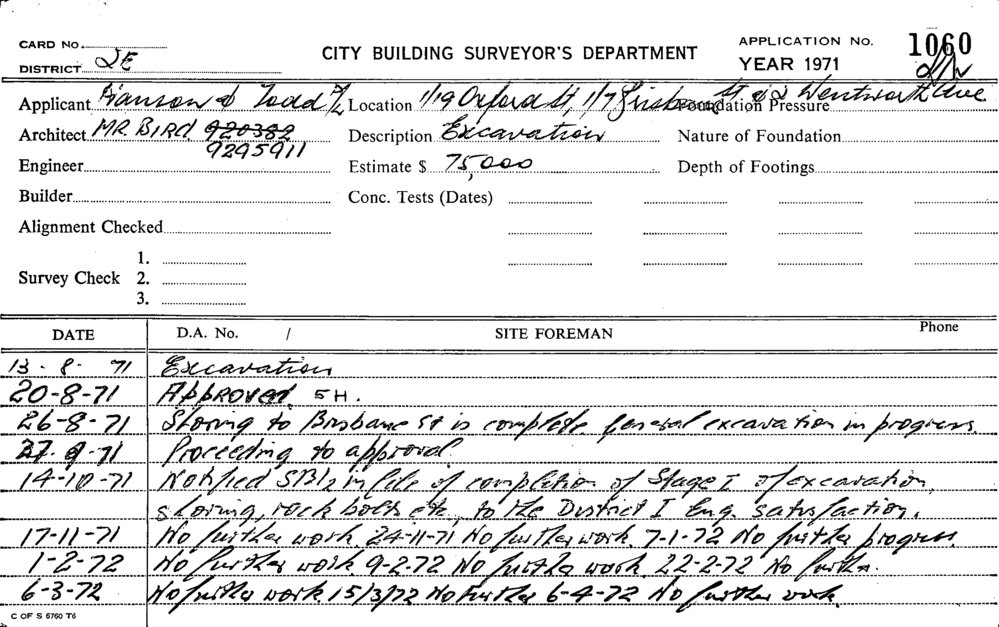 CARD No.
DISTRICT SE
CITY BUILDING SURVEYOR'S DEPARTMENT
APPLICATION No. 1060
YEAR 1971
Applicant Hanson & Todd P/L Location 1/19 Oxford St, 1/7 Brisbane St & 2 Wentworth Ave Foundation Pressure
Architect MR BIRD 920382 Description Excavation Nature of Foundation
9295911
Engineer Estimate $ 75,000 Depth of Footings
Builder Conc. Tests (Dates)
Alignment Checked
Survey Check 1.
2.
3.
DATE D.A. No. / SITE FOREMAN Phone
13-8-71 Excavation
20-8-71 Approved SH.
26-8-71 Shoring to Brisbane St is complete. General excavation in progress.
27.9.71 Proceeding to approval.
14-10-71 Notified in file of completion of Stage I of excavation,
shoring, rock bolts etc., to the District Eng. satisfaction.
17-11-71 No further work. 24-11-71 No further work. 7-1-72 No further progress.
1-2-72 No further work 9-2-72 No further work. 22-2-72 No further.
6-3-72 No further work. 15/3/72 No Further 6-4-72 No further work.
C OF S 6760 T6